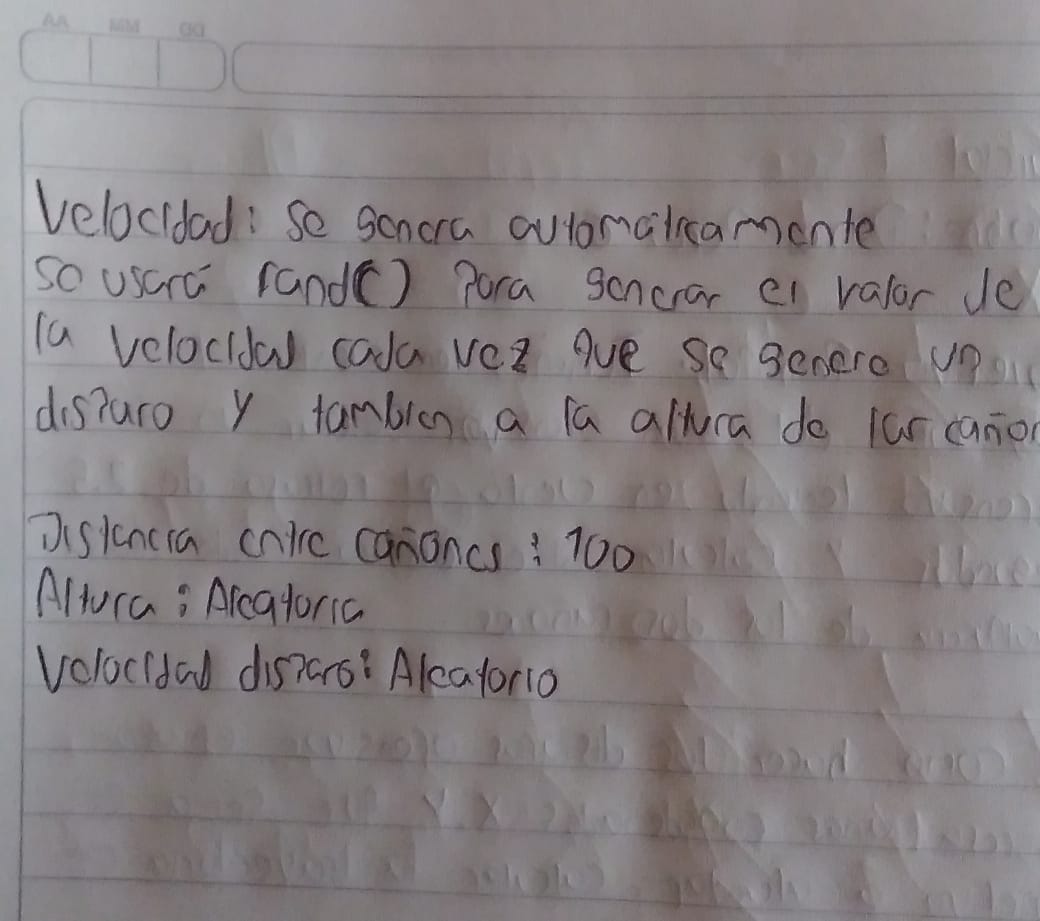 AA MM DD
Velocidad: se genera automáticamente
se usará rand() para generar el valor de
la velocidad cada vez que se genere un
disparo y tambien a la altura de las cañon
Distancia entre cañones: 100
Altura: Aleatoria
Velocidad disparo: Aleatorio